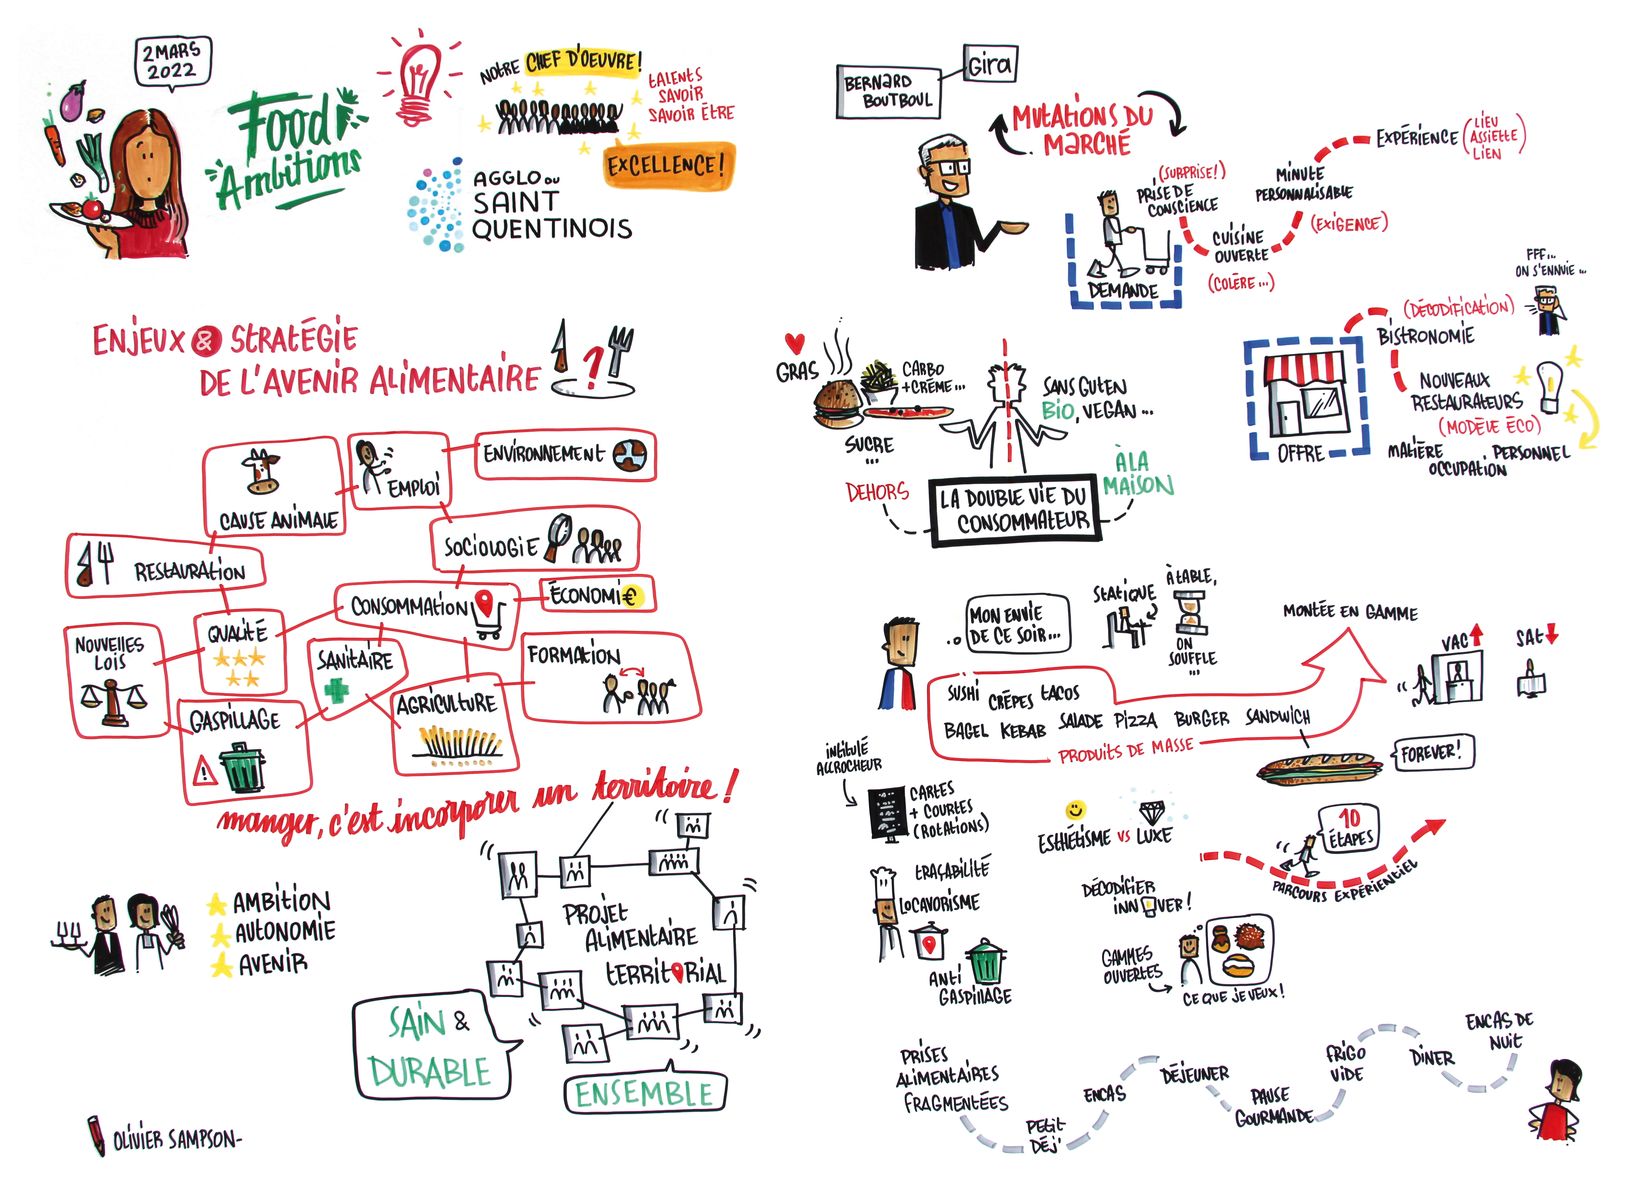 2 MARS
2022
Food
Ambitions
NOTRE CHEF D'OEUVRE !
TALENTS
SAVOIR
SAVOIR ÊTRE
EXCELLENCE !
AGGLO DU
SAINT
QUENTINOIS
ENJEUX & STRATÉGIE
DE L'AVENIR ALIMENTAIRE
?
CAUSE ANIMALE
EMPLOI
ENVIRONNEMENT
RESTAURATION
SOCIOLOGIE
CONSOMMATION
ÉCONOMI€
NOUVELLES
LOIS
QUALITÉ
SANITAIRE
FORMATION
GASPILLAGE
AGRICULTURE
manger, c'est incorporer un territoire !
AMBITION
AUTONOMIE
AVENIR
PROJET
ALIMENTAIRE
TERRITORIAL
SAIN &
DURABLE
ENSEMBLE
OLIVIER SAMPSON-
BERNARD
BOUTBOUL
Gira
MUTATIONS DU
MARCHÉ
(SURPRISE!)
PRISE DE
CONSCIENCE
DEMANDE
CUISINE
OUVERTE
(COLÈRE ...)
MINUTE
PERSONNALISABLE
(EXIGENCE)
EXPÉRIENCE (LIEU
ASSIETTE
LIEN)
FFF...
ON S'ENNUIE ...
(DÉCODIFICATION)
BISTRONOMIE
NOUVEAUX
RESTAURATEURS
(MODÈLE ÉCO)
MATIÈRE
OCCUPATION
PERSONNEL
OFFRE
GRAS
CARBO
+CRÈME...
SUCRE
...
DEHORS
SANS GUTEN
BIO, VEGAN ...
À LA
MAISON
LA DOUBLE VIE DU
CONSOMMATEUR
MON ENVIE
DE CE SOIR...
STATIQUE
À TABLE,
ON
SOUFFLE
...
MONTÉE EN GAMME
VAC
SAT
SUSHI CRÊPES TACOS
BAGEL KEBAB SALADE PIZZA BURGER SANDWICH
PRODUITS DE MASSE
FOREVER !
INTITULÉ
ACCROCHEUR
CARTES
+ COURTES
(ROTATIONS)
ESTHÉTISME VS LUXE
10
ÉTAPES
PARCOURS EXPÉRIENTIEL
TRAÇABILITÉ
LOCAVORISME
ANTI
GASPILLAGE
DÉCODIFIER
INNOVER !
GAMMES
OUVERTES
CE QUE JE VEUX !
PRISES
ALIMENTAIRES
FRAGMENTÉES
PETIT
DÉJ'
ENCAS
DÉJEUNER
PAUSE
GOURMANDE
FRIGO
VIDE
DÎNER
ENCAS DE
NUIT